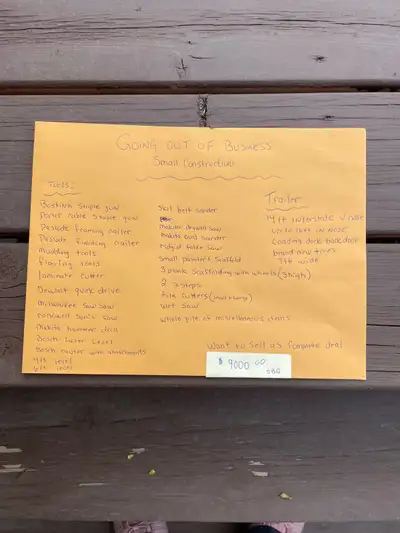 GOING OUT OF BUSINESS
Small Construction
Tools:
Bostich staple gun
Porter cable staple gun
Paslode framing nailer
Paslode finishing nailer
mudding tools
flooring tools
laminate cutter
Dewalt quick drive
milwaukee saw saw
rockwell saw
makita hammer drill
Bosch laser level
Bosch router with attachments
4ft level
6ft level
skil belt sander
makita drywall saw
makita band sander
ridgid table saw
small painters scaffold
3 plank scaffolding with wheels (3 high)
2 x steps
tile cutters
wet saw
whole pile of miscellaneous items
Trailer
14ft interstate V nose
up to 16ft in nose
Loading dock back door
brand new tires
7ft wide
Want to sell as complete deal
$ 9000 00
OBO